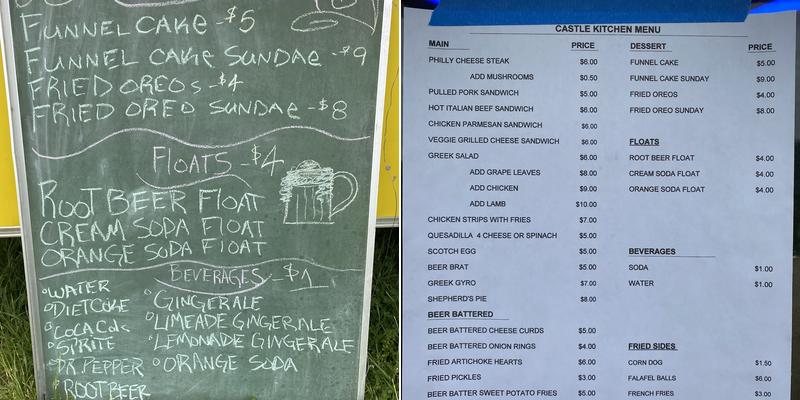 FUNNEL CAKE - $5
FUNNEL CAKE SUNDAE - $9
FRIED OREOS - $4
FRIED OREO SUNDAE - $8
FLOATS - $4
ROOT BEER FLOAT
CREAM SODA FLOAT
ORANGE SODA FLOAT
BEVERAGES - $1
WATER
DIET COKE
COCA COLA
SPRITE
DR. PEPPER
ROOT BEER
GINGERALE
LIMEADE GINGERALE
LEMONADE GINGERALE
ORANGE SODA
CASTLE KITCHEN MENU
MAIN PRICE
PHILLY CHEESE STEAK $6.00
ADD MUSHROOMS $0.50
PULLED PORK SANDWICH $5.00
HOT ITALIAN BEEF SANDWICH $6.00
CHICKEN PARMESAN SANDWICH $6.00
VEGGIE GRILLED CHEESE SANDWICH $6.00
GREEK SALAD $6.00
ADD GRAPE LEAVES $8.00
ADD CHICKEN $9.00
ADD LAMB $10.00
CHICKEN STRIPS WITH FRIES $7.00
QUESADILLA 4 CHEESE OR SPINACH $5.00
SCOTCH EGG $5.00
BEER BRAT $5.00
GREEK GYRO $7.00
SHEPHERD'S PIE $8.00
BEER BATTERED
BEER BATTERED CHEESE CURDS $5.00
BEER BATTERED ONION RINGS $4.00
FRIED ARTICHOKE HEARTS $6.00
FRIED PICKLES $3.00
BEER BATTER SWEET POTATO FRIES $5.00
DESSERT PRICE
FUNNEL CAKE $5.00
FUNNEL CAKE SUNDAY $9.00
FRIED OREOS $4.00
FRIED OREO SUNDAY $8.00
FLOATS
ROOT BEER FLOAT $4.00
CREAM SODA FLOAT $4.00
ORANGE SODA FLOAT $4.00
BEVERAGES
SODA $1.00
WATER $1.00
FRIED SIDES
CORN DOG $1.50
FALAFEL BALLS $6.00
FRENCH FRIES $3.00